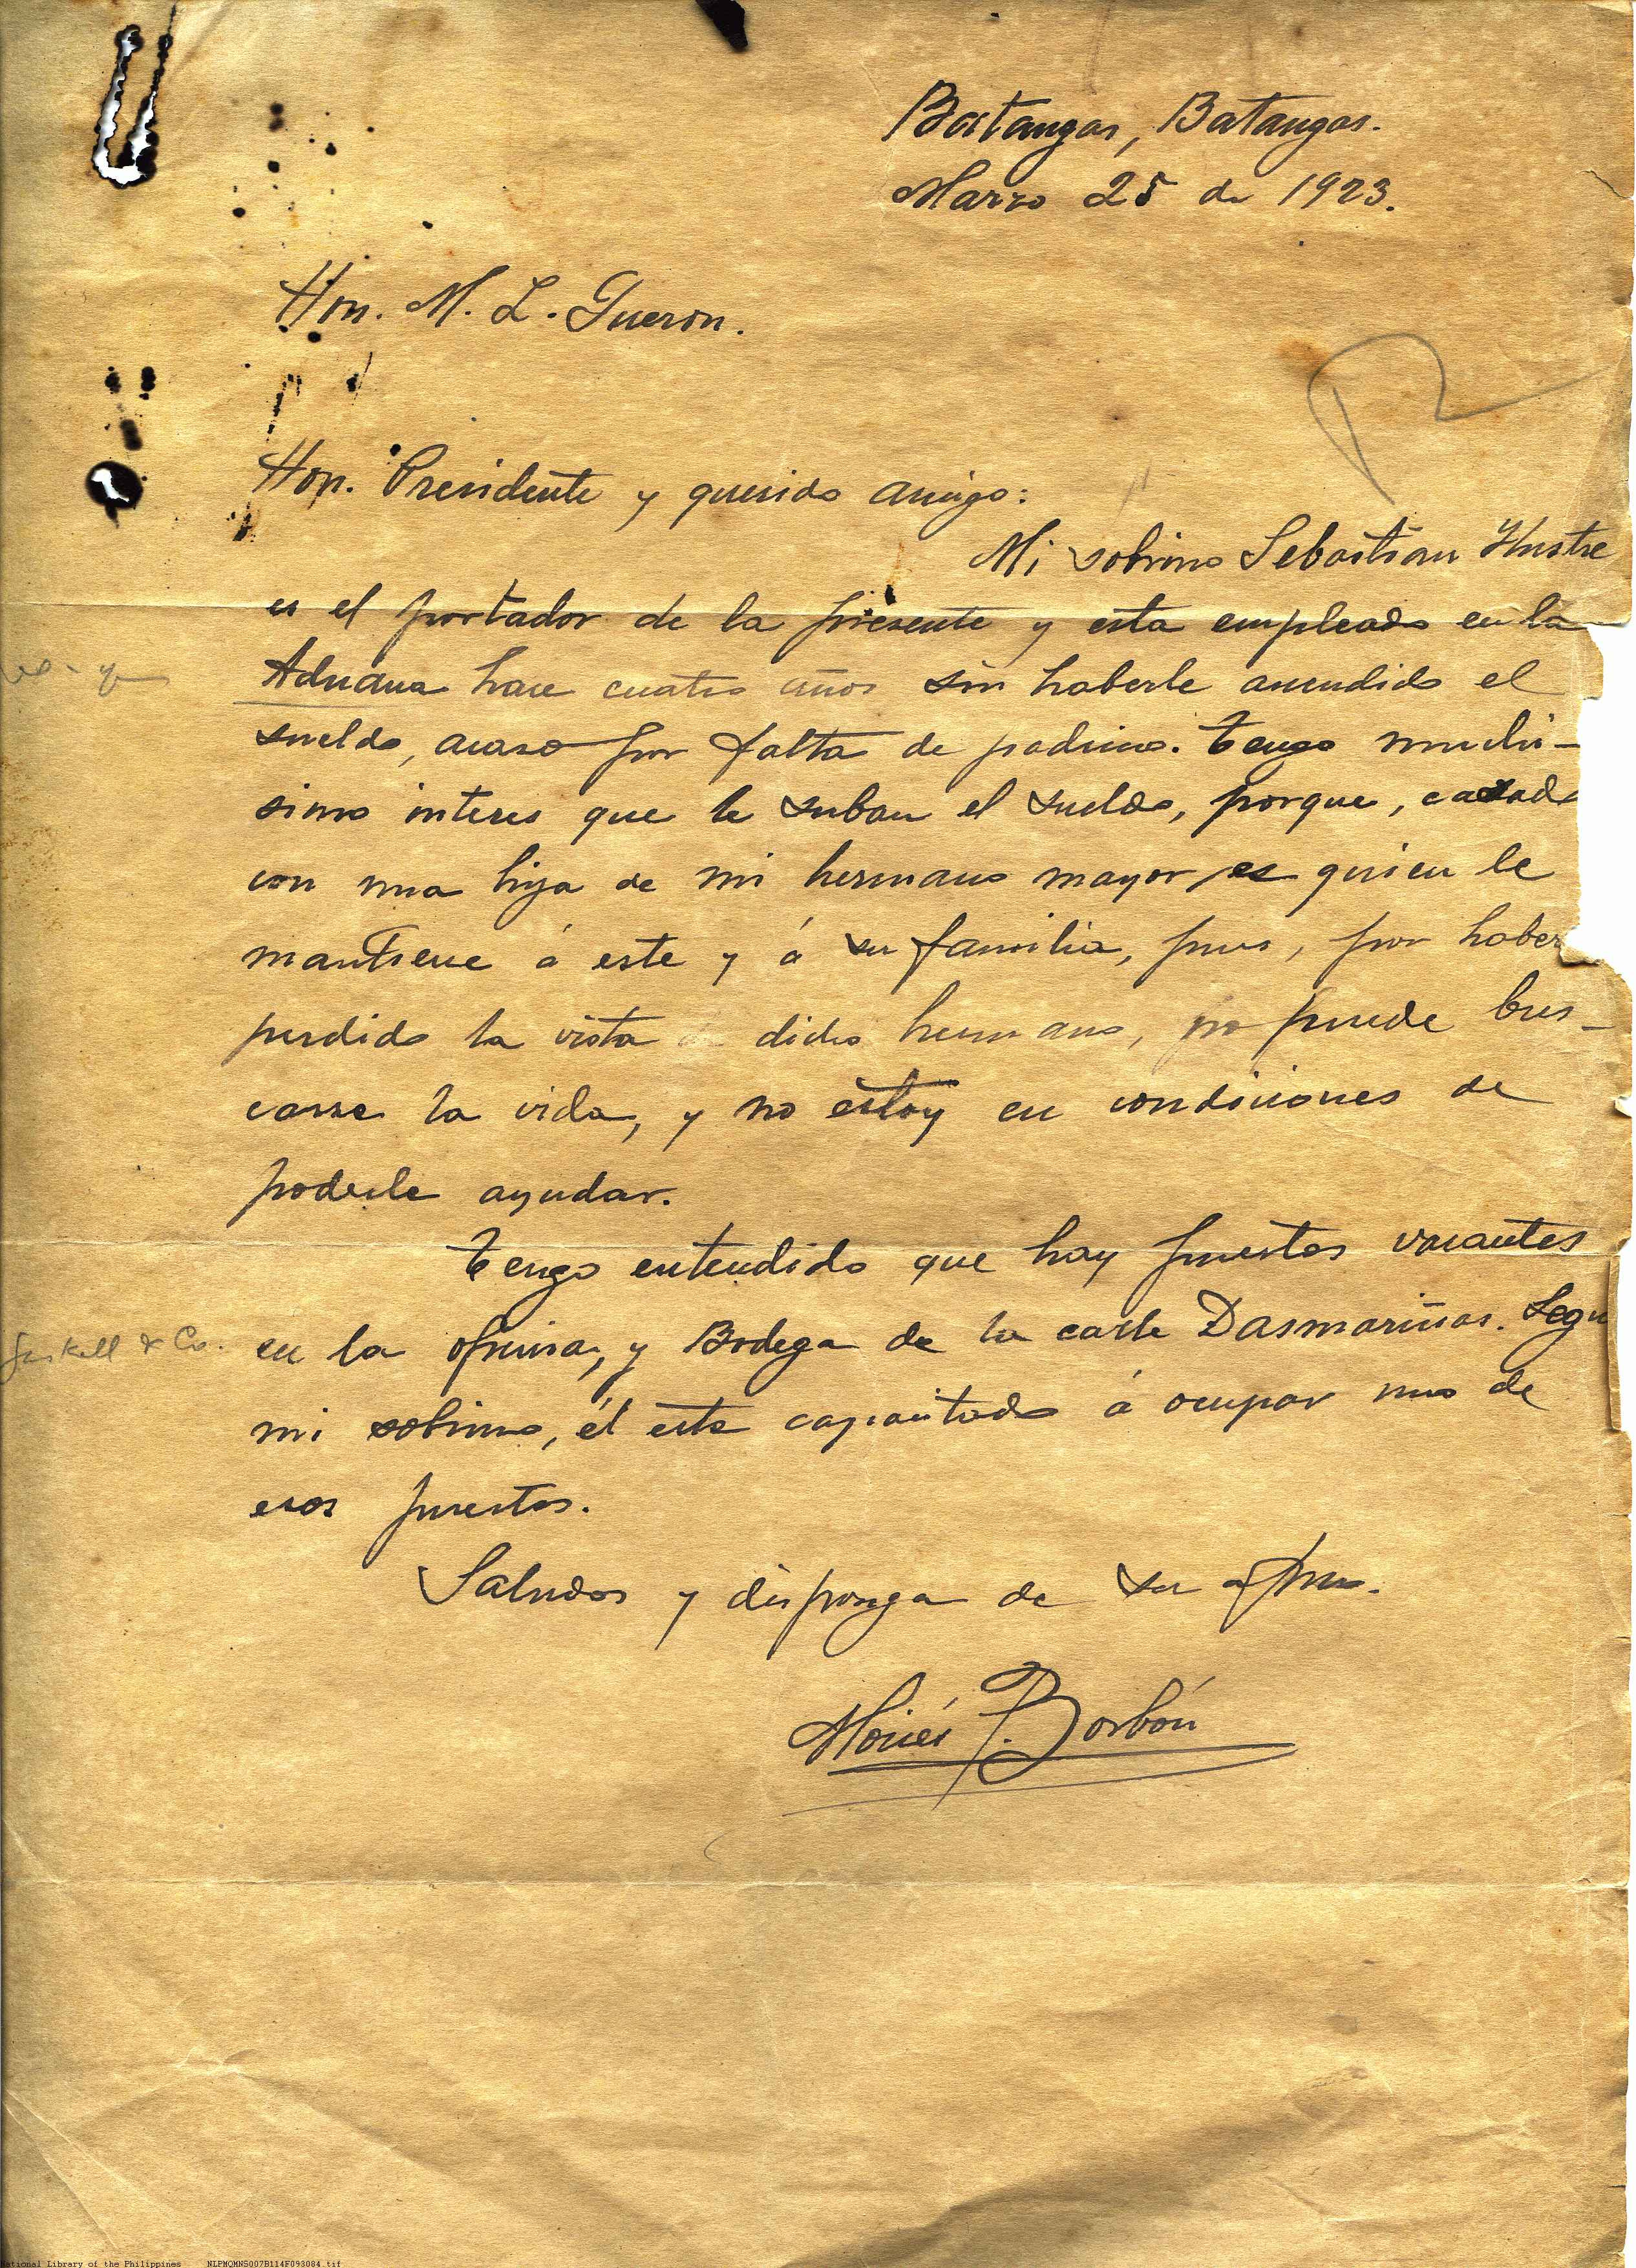 Batangas, Batangas.
Marzo 25 de 1923.
Hon. M. L. Quezon.
Hon. Presidente y querido amigo:
Mi sobrino Sebastian Ilustre
es el portador de la presente y esta empleado en la
Aduana hace cuatro años sin haberle ascendido el
sueldo, acaso por falta de padrino. Tengo muchi-
simo interes que le suban el sueldo, porque, casado
con una hija de mi hermano mayor, es quien le
mantiene á este y á su familia, pues, por haber
perdido la vista dicho hermano, no puede bus-
carse la vida, y no estoy en condiciones de
poderle ayudar.
Tengo entendido que hay puestos vacantes
Gaskell & Co. en la oficina, y Bodega de la calle Dasmariñas. Segu
mi sobrino, él esta capacitado á ocupar uno de
esos puestos.
Saludos y disponga de su afmo.
Moisés P. Borbón
National Library of the Philippines NLPMQMNS007B114F093084.tif